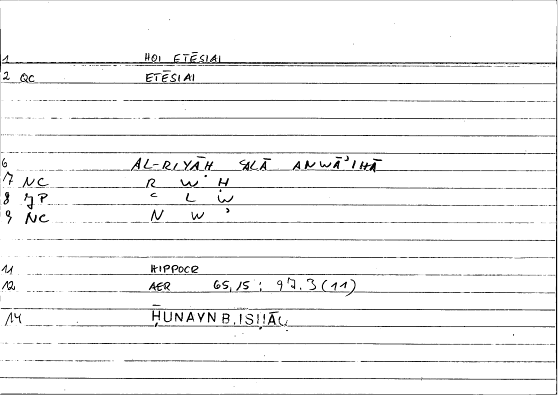 1 HOI ETĒSIAI
2 QC ETĒSIAI
6 AL-RIYĀḤ ʿALĀ ANWĀʾIHĀ
7 NC R W Ḥ
8 JP ʿ L W
9 NC N W ʾ
11 HIPPOCR
12 AER 65,15 : 97.3 (11)
14 ḤUNAYN B. ISḤĀQ